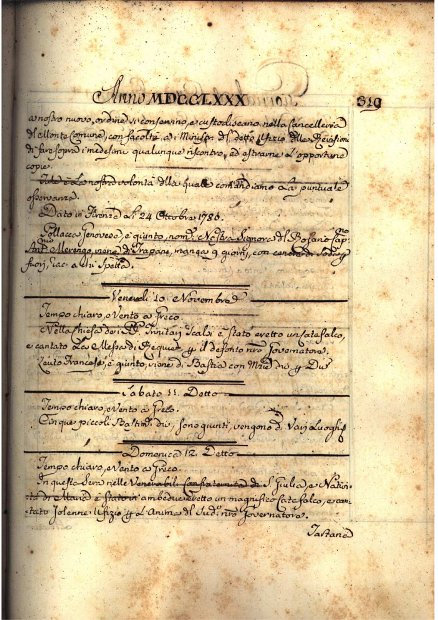 Anno MDCCLXXX 319
a nostro nuovo ordine si conservino, e custodiscano nella Cancelleria
del Monte Comune, con facoltà a i Ministri di detto Ufizio delle Revisioni
di fare sopra i medesimi qualunque riscontro, ed estrarne l'opportune
copie.
Tale è la nostra volontà della quale comandiamo la puntuale
osservanza.
Dato in Firenze li 24 Ottobre 1780.
Pollacca Genovese, è giunto, nom.ta Nostra Signora del Rosario Cap.no
Merengo, viene da Trapani, manca 9 giorni, con
Venerdì 10 Novembre
Tempo chiaro, e Vento a Greco.
Nella Chiesa dei Trinitarj Scalzi è stato eretto un Catafalco,
e cantato la Messa di Requie p il defonto nro Governatore.
Leuto Francese, è giunto, viene di Bastia con
Sabato 11. Detto
Tempo chiaro, e Vento a Greco.
Cinque piccoli Bastim.ti div. sono giunti, vengono da Varj Luoghi
Domenica 12. Detto
Tempo chiaro, e Vento a Greco.
In questa Sera nelle Venerabili Confraternite di S. Giulia, e Nativi-
tà di Maria è stato in ambedue eretto un magnifico Catafalco, e can-
tato solenne Ufizio p l'Anima del Sud.o nro Governatore.
Tartane